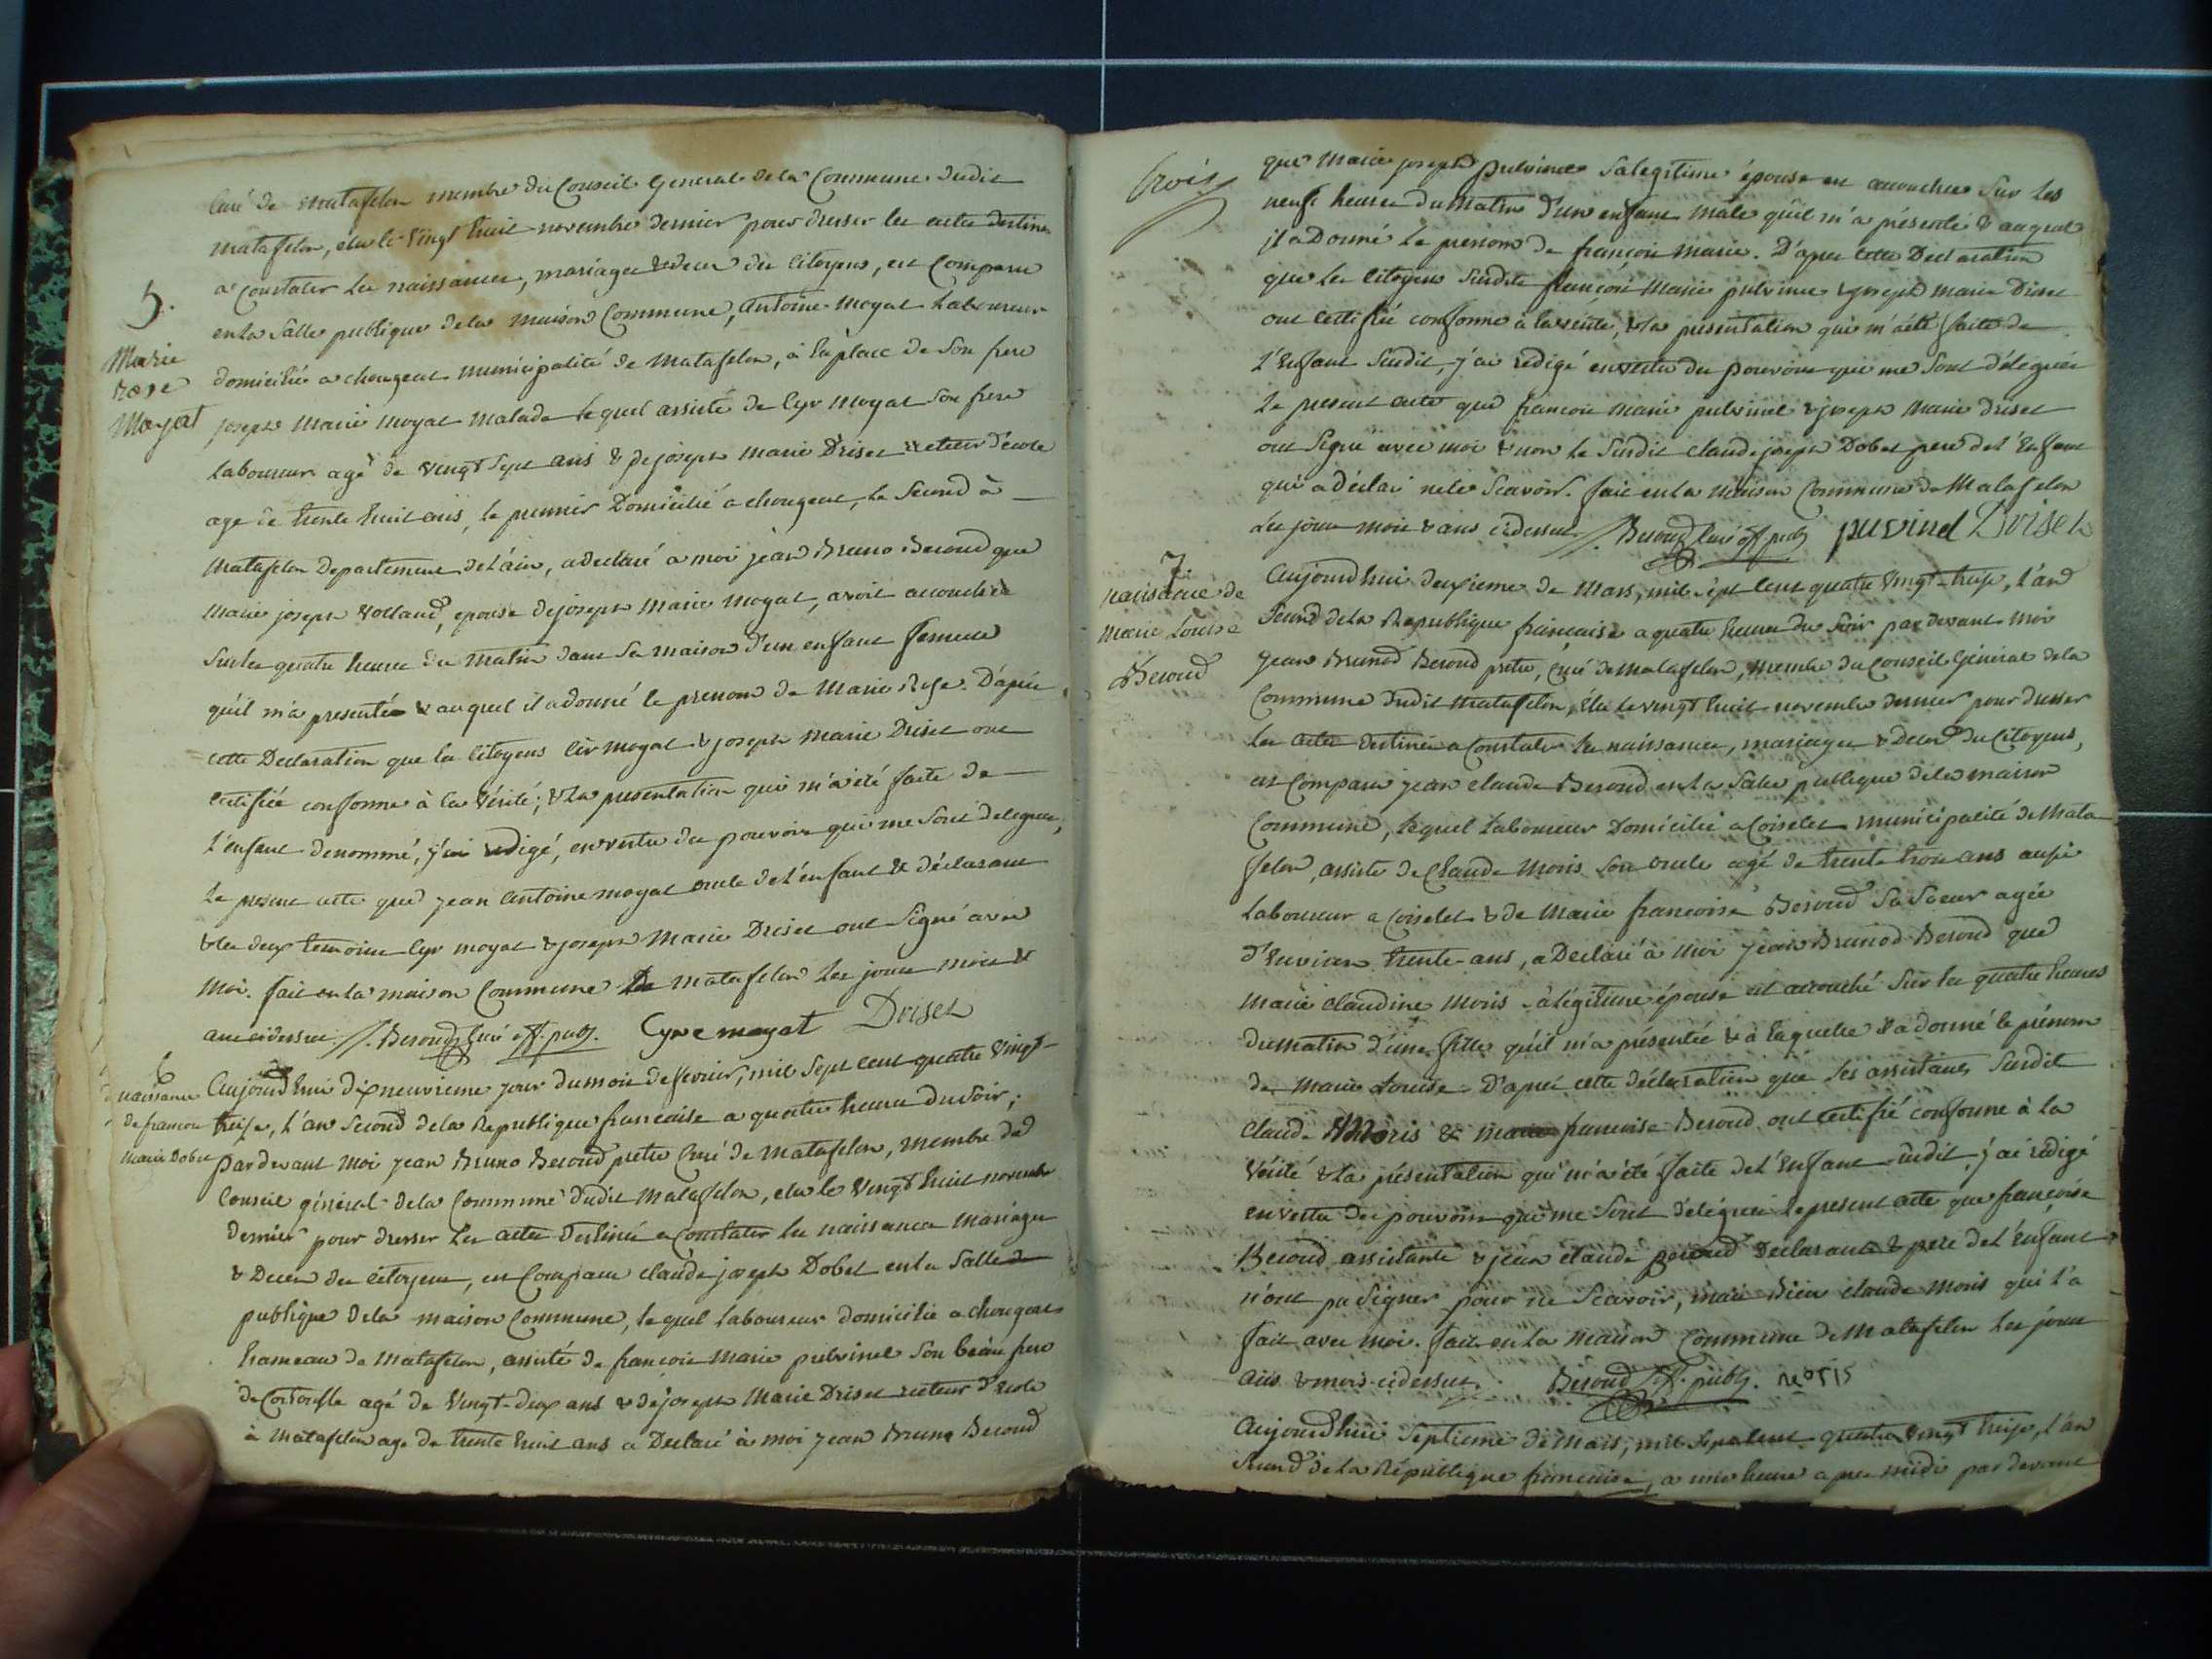 Curé de matafelon membre du Conseil General de la Commune dudit
matafelon, élu le vingt huit novembre dernier pour dresser les actes destinés
a constater les naissances, mariages & deces des citoyens, est comparu
5.
en la salle publique de la maison Commune, antoine moyat laboureur
Marie
rose
Moyat
domicilié a chougeat municipalité de matafelon, à la place de son frere
joseph marie moyat malade lequel assisté de Cyr moyat son frere
laboureur agé de vingt sept ans & de joseph marie Driset recteur d'école
age de trente huit ans, le premier Domicilié a chougeat, le second à
matafelon Departement de l'ain, a declaré a moi jean Bruno Beroud que
marie joseph volland, epouse de joseph marie moyat, avoit accouchée
sur les quatre heures du matin dans sa maison d'un enfant femelle
qu'il m'a presenté & auquel il a donné le prenom de Marie Rose. D'apres
cette Declaration que les citoyens Cir moyat & joseph marie Driset ont
certifiée conforme à la vérité; & la presentation qui m'a été faite de
l'enfant denommé, j'ai redigé, en vertu des pouvoirs qui me sont delegués,
le present acte que jean antoine moyat oncle de l'enfant & déclarant
& les deux temoins Cyr moyat & joseph Marie Driset ont signé avec
moi. fait en la maison Commune De matafelon les jours mois &
ans cidessus. //. Beroud Curé off. publ. Cyre moyat Driset
6
naissance
de francois
marie Dobet
Aujourd'hui dixneuvieme jour du mois de fevrier, mil sept cent quatre vingt-
treize, l'an second de la Republique francaise a quatre heures du soir,
par devant moi jean Bruno Beroud pretre Curé de matafelon, membre du
Conseil général de la Commune dudit matafelon, elu le vingt huit novembre
dernier pour dresser les actes destinés a constater les naissances mariages
& Deces des citoyens, est comparu claude joseph Dobet en la salle
publique de la maison Commune, lequel laboureur domicilié a chougeat
hameau de matafelon, assisté de francois marie pulvinel son beau frere
de agé de vingt-deux ans & de joseph marie Driset recteur d'ecole
à matafelon age de trente huit ans a Declaré à moi jean Bruno Beroud
trois
que marie joseph pulvinel sa legitime épouse est accouchée sur les
neuf heures du matin d'un enfant mâle qu'il m'a présenté & auquel
il a Donné le prenom de françois marie. D'apres cette Declaration
que les citoyens susdits françois marie pulvinel & joseph marie Driset
ont certifiée conforme à la verité, & la presentation qui m'a été faite de
l'enfant susdit, j'ai redigé en vertu des pouvoirs qui me sont délegués
le present acte que francois marie pulvinel & joseph marie driset
ont signé avec moi & non le susdit claude joseph Dobet pere de l'enfant
qui a déclaré ne le scavoir. fait en la maison Commune de Matafelon
les jours mois & ans cidessus. //. Beroud Curé off publ puvinel Driset
7.
naissance de
marie Louise
Beroud
Aujourd'hui deuxieme de Mars, mil sept cent quatre vingt-treize, l'an
second de la Republique francaise a quatre heures du soir par devant moi
jean Brunod Beroud pretre, Curé de Matafelon, membre du Conseil Général de la
Commune dudit matafelon, élu le vingt huit novembre dernier pour dresser
les actes destinés a constater les naissances, mariages & Deces des Citoyens,
est comparu jean claude Beroud en la salle publique de la maison
Commune, lequel laboureur Domicilié a Coiselet municipalité de Mata
felon, assisté de Claude Moris son oncle agé de trente trois ans aussi
laboureur a Coiselet & de Marie francoise Beroud sa soeur agée
d'environ trente-ans, a Declaré à moi jean Brunod Beroud que
marie claudine Moris sa légitime épouse est accouché sur les quatre heures
du matin d'une fille qu'il m'a présentée & à laquelle il a donné le prénom
de marie Louise. D'apres cette déclaration que les assistants susdits
claude Moris & marie francoise Beroud ont certifié conforme à la
vérité & la présentation qui m'a été faite de l'enfant sudit, j'ai rédigé
en vertu des pouvoirs qui me sont délegués le present acte que françoise
Beroud assistante & jean claude Beroud Declarant & pere de l'enfant
n'ont pu signer pour ne scavoir, mais bien claude Moris qui l'a
fait avec moi. fait en la maison Commune de Matafelon les jours
ans & mois cidessus. Beroud off. publ. moris
Aujourd'hui septieme de Mars, mil sept cent quatre vingt treize, l'an
second de la République francaise, a une heure apres midi par devant